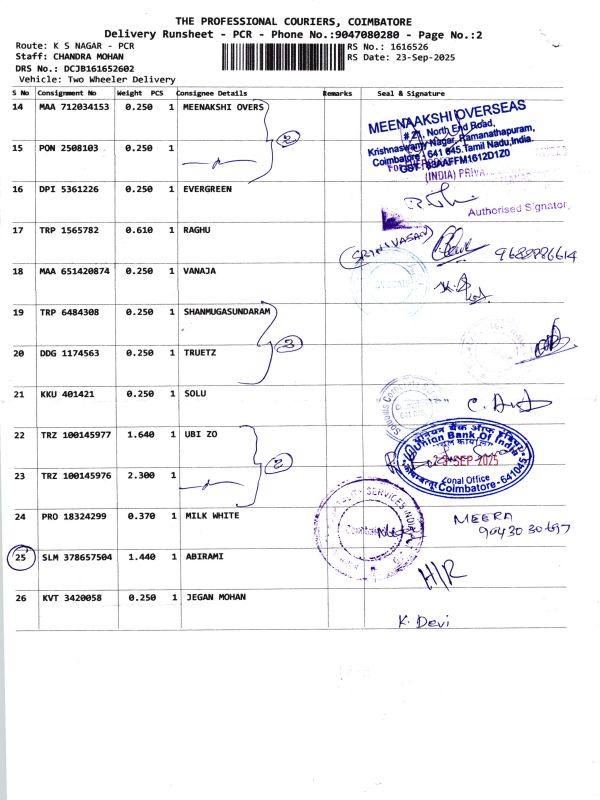 THE PROFESSIONAL COURIERS, COIMBATORE
Delivery Runsheet - PCR - Phone No.:9047080280 - Page No.:2
Route: K S NAGAR - PCR RS No.: 1616526
Staff: CHANDRA MOHAN RS Date: 23-Sep-2025
DRS No.: DCJB161652602
Vehicle: Two Wheeler Delivery
S No Consignment No Weight PCS Consignee Details Remarks Seal & Signature
14 MAA 712034153 0.250 1 MEENAKSHI OVERS
2
MEENAAKSHI OVERSEAS
# 21, North End Road,
Krishnaswamy Nagar, Ramanathapuram,
Coimbatore - 641 045. Tamil Nadu, India.
GST: 33AAFFM1612D1Z0
15 PON 2508103 0.250 1
(INDIA) PRIVA
16 DPI 5361226 0.250 1 EVERGREEN
Authorised Signator
17 TRP 1565782 0.610 1 RAGHU
(SRINIVASAN) 9688886614
18 MAA 651420874 0.250 1 VANAJA
19 TRP 6484308 0.250 1 SHANMUGASUNDARAM
3
20 DDG 1174563 0.250 1 TRUETZ
21 KKU 401421 0.250 1 SOLU
22 TRZ 100145977 1.640 1 UBI ZO
2
यूनियन बैंक ऑफ इंडिया
Union Bank Of India
23 SEP 2025
Zonal Office
Coimbatore - 641045
23 TRZ 100145976 2.300 1
24 PRO 18324299 0.370 1 MILK WHITE
MEERA
25 SLM 378657504 1.440 1 ABIRAMI
H/R
26 KVT 3420058 0.250 1 JEGAN MOHAN
K. Devi